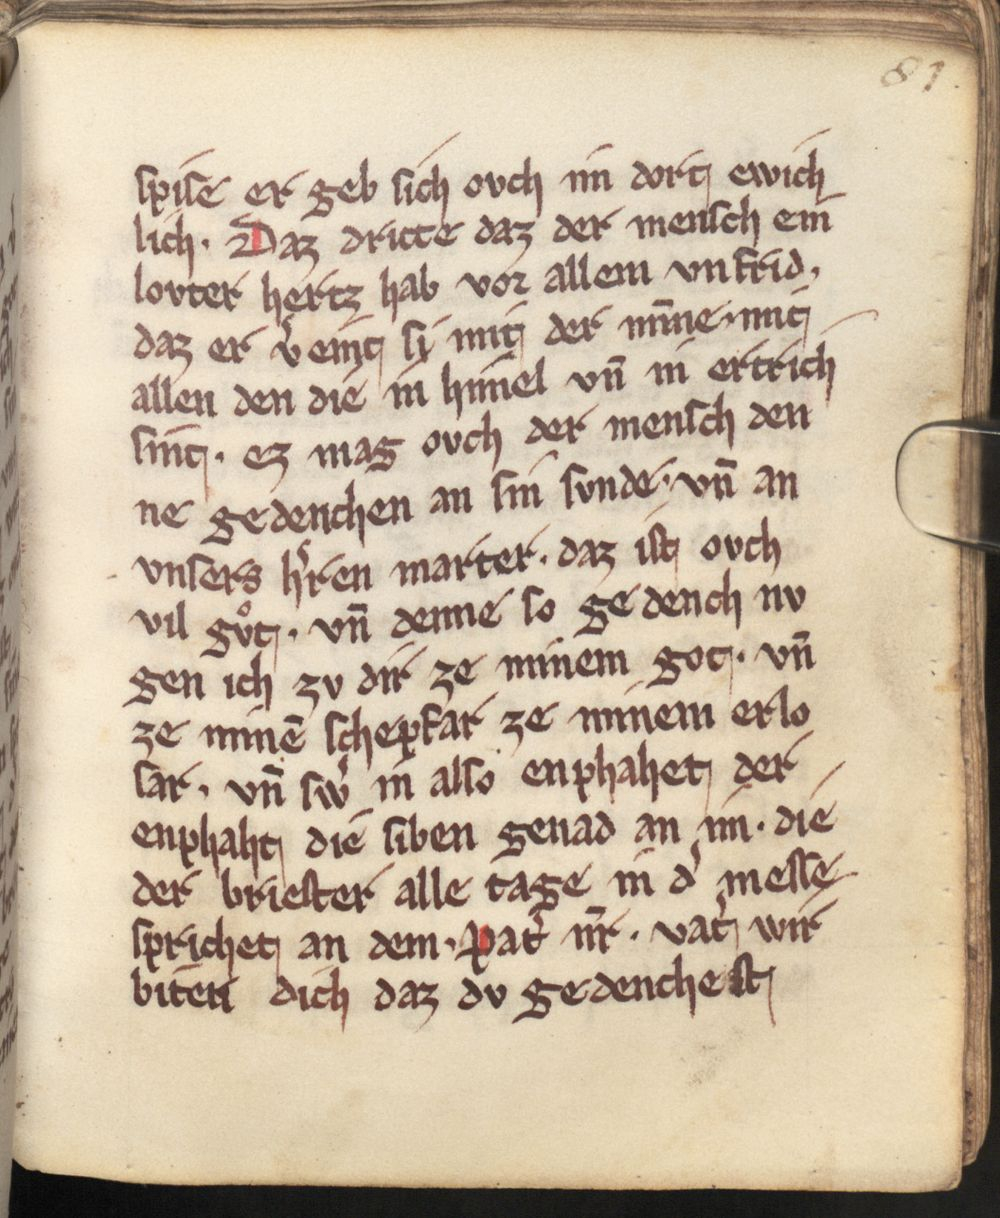 81
spise er geb sich ovch im dort ewich
lich. Daz dritte daz der mensch ein
lovter hertz hab vor allem vnfrid,
daz er v̾eint si mit der mīne. mit
allen den die in himel vn̄ in ertrich
sint. ez mag ovch der mensch den
ne gedenchen an sin svnde. vn̄ an
vnsers h̾ren marter. daz ist ovch
vil gvͦt. vn̄ denne so gedench nv
gen ich zv dir ze minem got. vn̄
ze minē schepfar ze minem erlo
sar. vn̄ sw̾ in also enphahet der
enphaht die siben genad an im. die
der briester alle tage in d̾ messe
sprichet an dem. Pat̾ nr̄. vat̾ wir
biten dich daz dv gedenchest